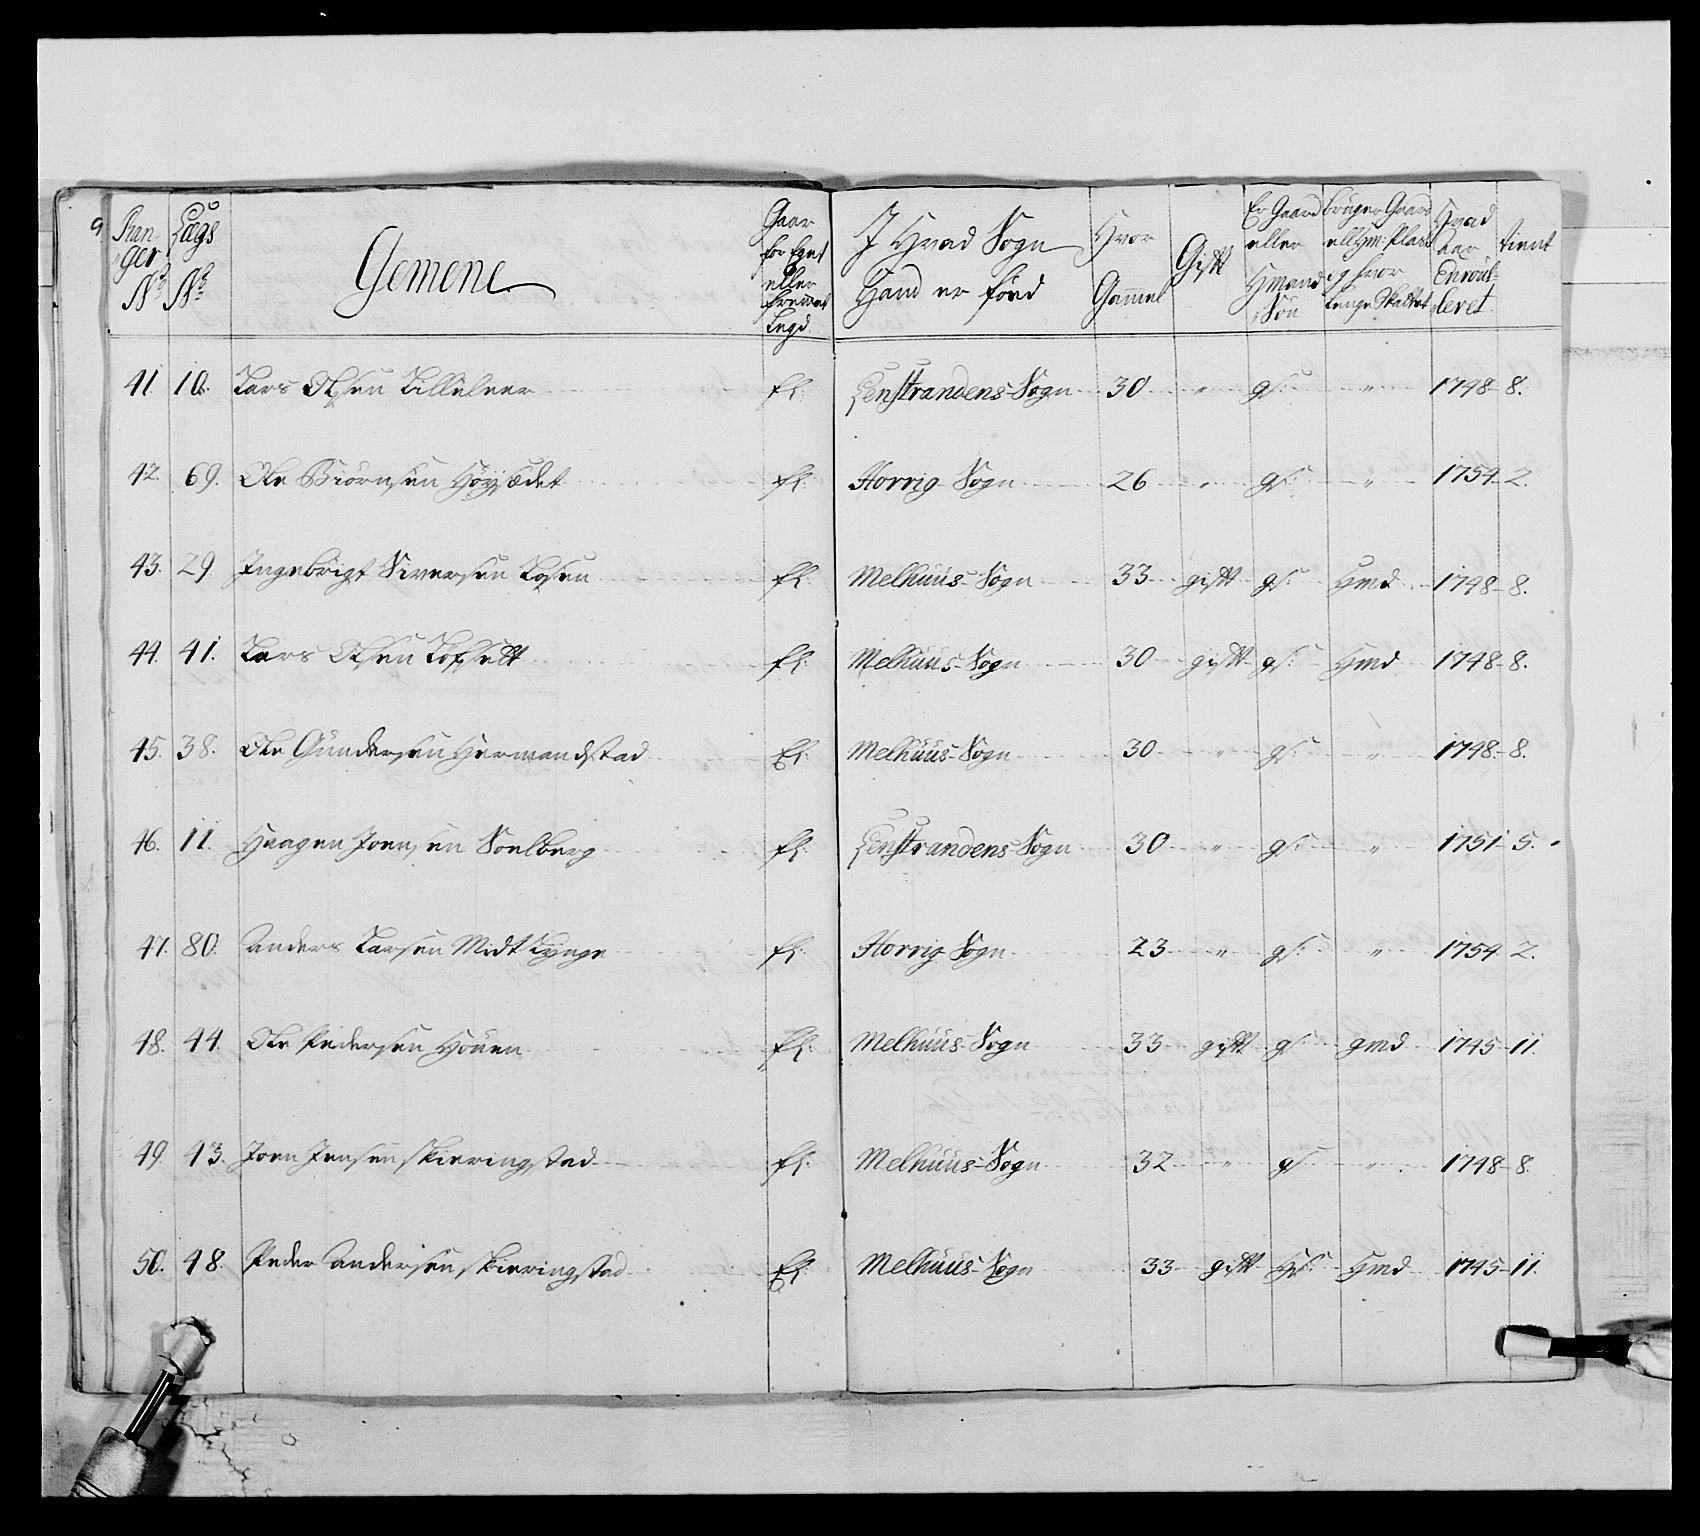 Ran-
ger
No
Lægs
No
Gemene
Gaar
for Eget
eller
fremet
Legd
I Hvad Sogn
Hand er föed
Hvor
Gammel
Gift
Er Gaard
eller
Hmand
Sön
bruger Gaard
ell Hm: Plads
og hvor
lenge
Hvad
Aar
Enroul-
leret
tient
41. 10. Lars Olsen fl: Leenstrandens Sogn 30 " gS: " 1748 - 8.
42. 69. Ole Biörnsen Höysædet fl: Horrig Sogn 26 " gS: " 1754 - 2.
43. 29. Ingebrigt Siversen Losen fl: Melhuus Sogn 33 gift gS: Hmd 1748 - 8.
44. 41. Lars Olsen fl: Melhuus Sogn 30 gift gS: Hmd 1748 - 8.
45. 38. Ole Gundersen Hermandstad El: Melhuus Sogn 30 " gS: " 1748 - 8.
46. 11. Haagen Joensen Soelberg fl: Leenstrandens Sogn 30 " gS: " 1751 - 5.
47. 80. Anders Larsen Midt Lynge fl: Horrig Sogn 23 " gS: " 1754 - 2.
48. 44. Ole Pedersen Houen fl: Melhuus Sogn 33 gift gS: gmd 1745 - 11.
49. 43. Joen Jensen Skieringstad fl: Melhuus Sogn 32 " gS: " 1748 - 8.
50. 48. Peder Andersen Skieringstad El: Melhuus Sogn 33 gift HS: Hmd 1745 - 11.